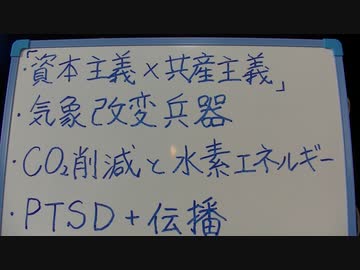 ・「資本主義×共産主義」
・気象改変兵器
・CO₂削減と水素エネルギー
・PTSD+伝播